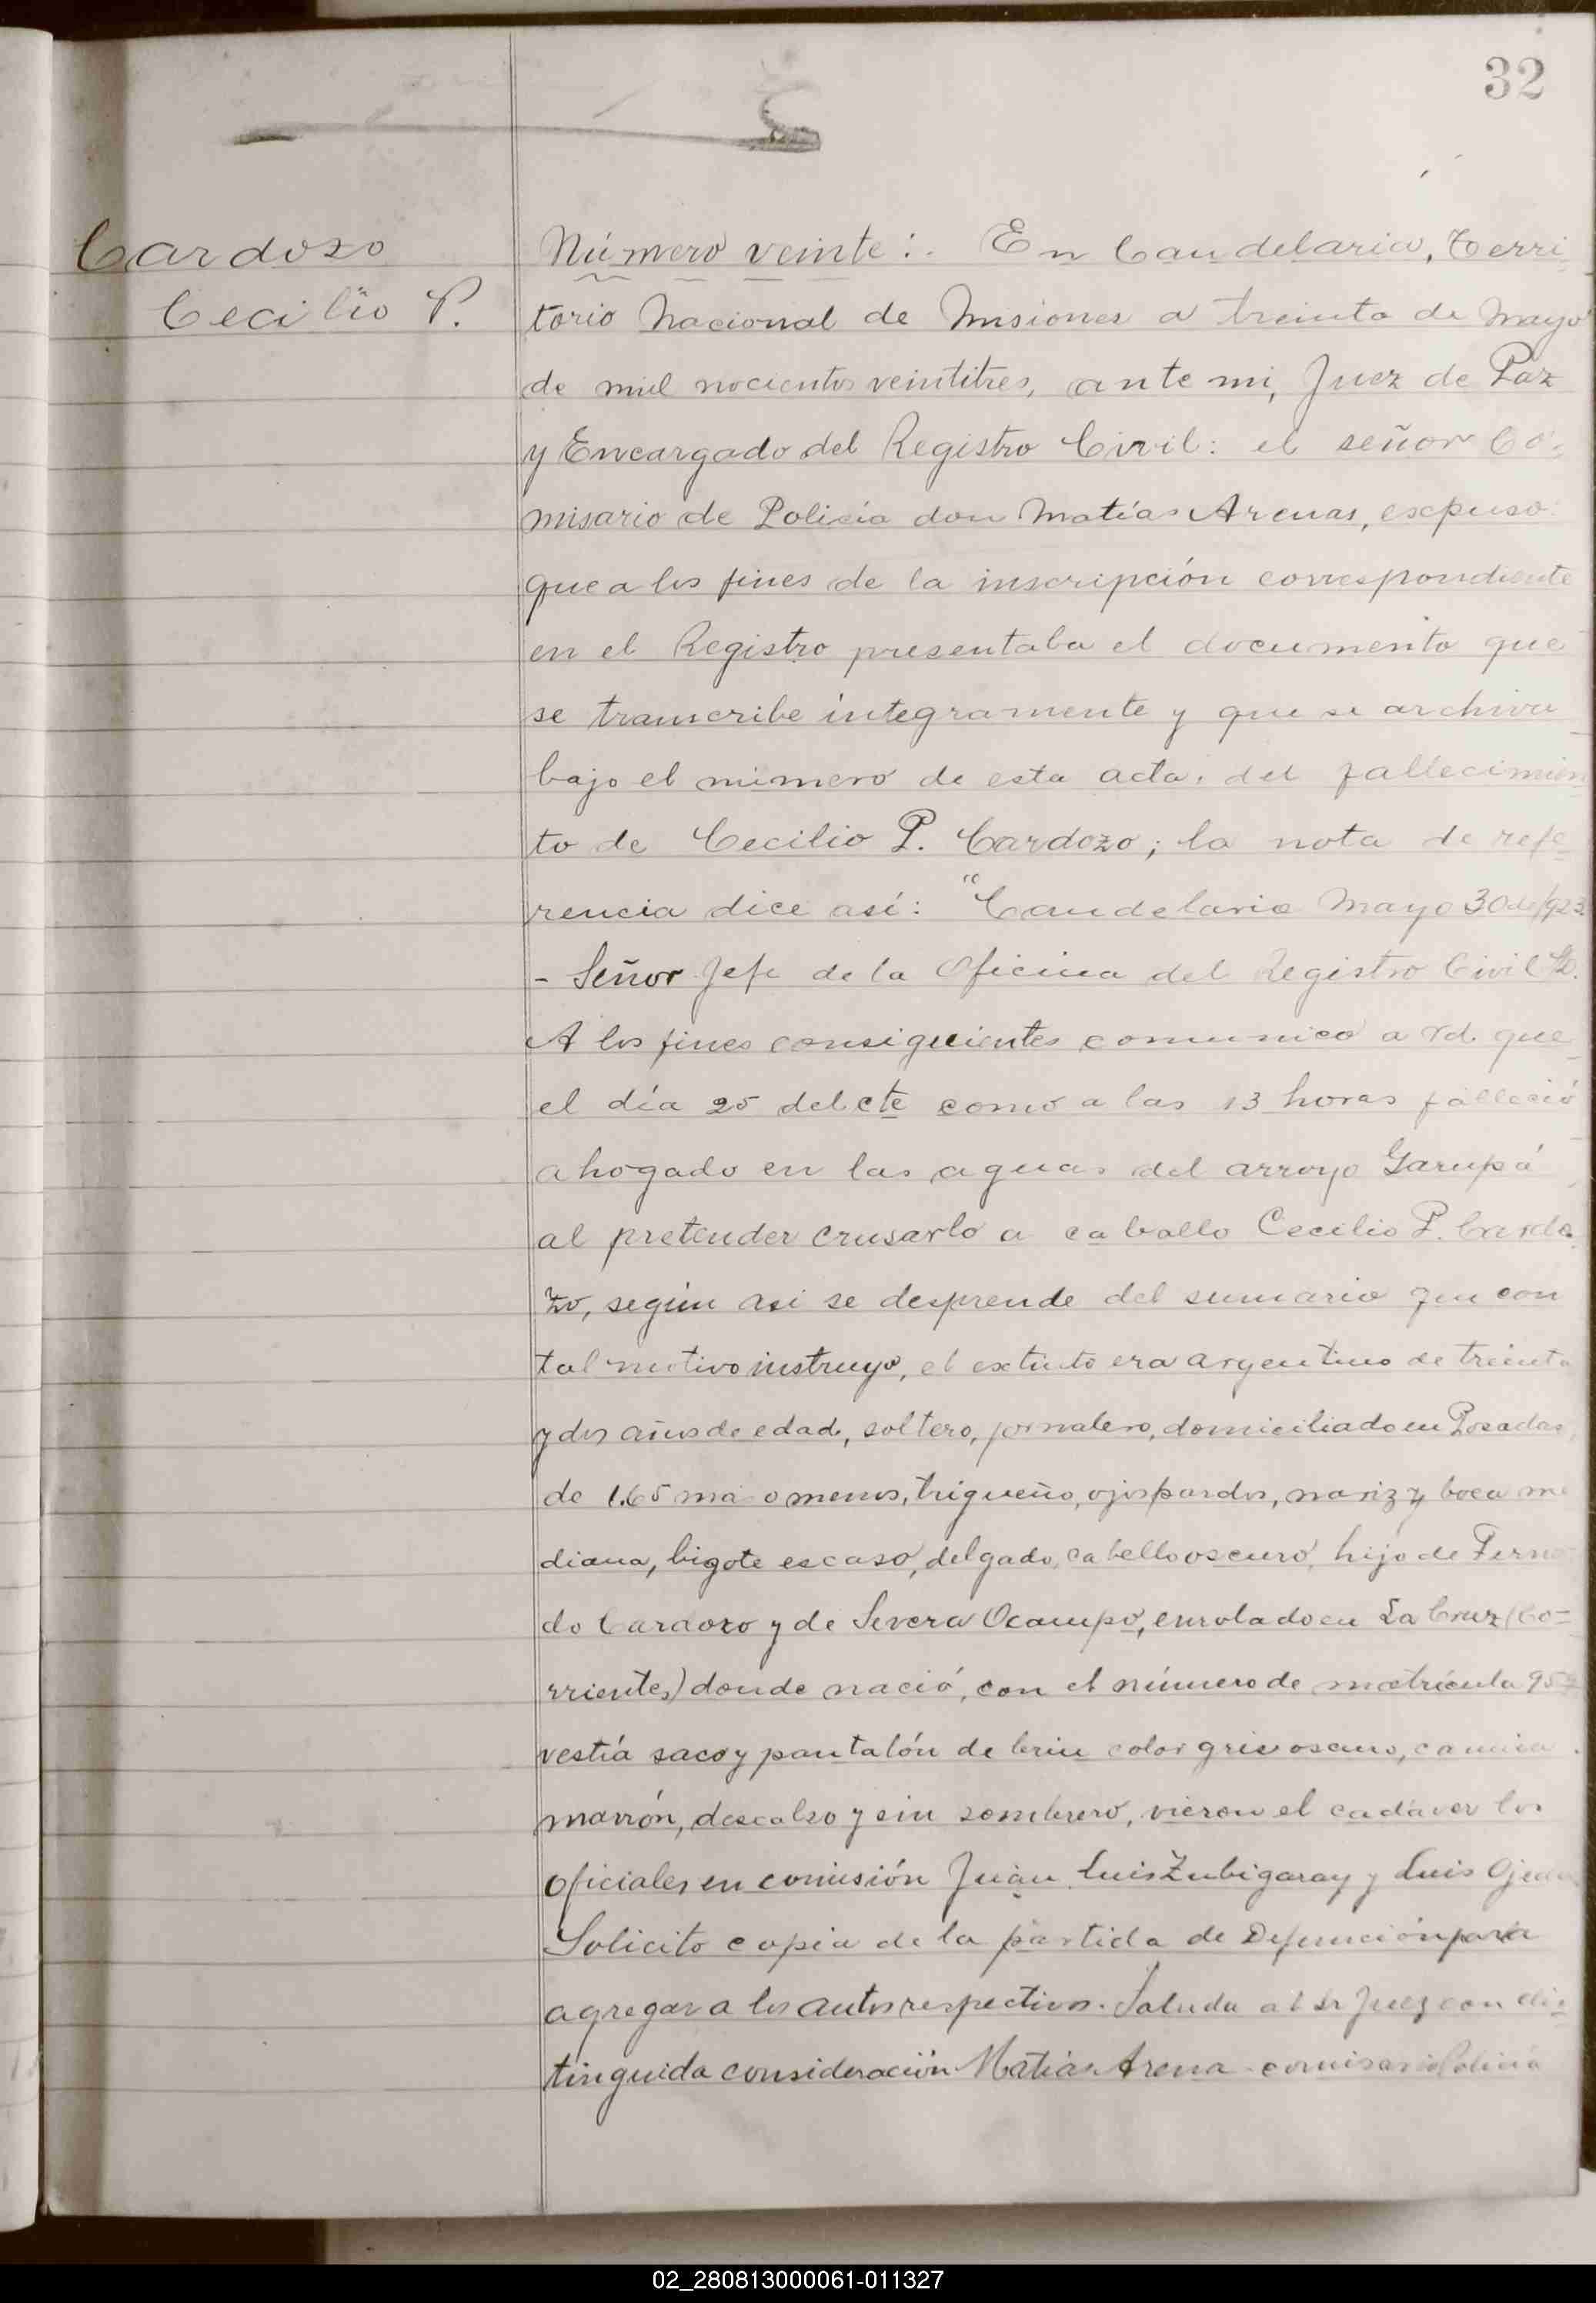 32
Cardozo
Cecilio P.
Número veinte:. En Candelaria, Terri
torio Nacional de Misiones a treinta de Mayo
de mil nocientos veintitres, ante mi, Juez de Paz
y Encargado del Registro Civil: el señor Co-
misario de Policía don Matías Arenas, expuso:
que a los fines de la inscripción correspondiente
en el Registro presentaba el documento que
se transcribe integramente y que se archiva
bajo el número de esta acta, del fallecimien
to de Cecilio P. Cardozo; la nota de refe
rencia dice así: "Candelaria Mayo 30 de/923.
- Señor Jefe de la Oficina del Registro Civil S/D.
A los fines consiguientes comunico a Vd. que
el día 25 del cte como a las 13 horas falleció
ahogado en las aguas del arroyo Garupá
al pretender crusarlo a caballo Cecilio P. Cardo
zo, según asi se desprende del sumario que con
tal motivo instruyo, el extinto era argentino de treinta
y dos años de edad, soltero, jornalero, domiciliado en Posadas,
de 1.65 mas o menos, trigueño, ojos pardos, nariz y boca me
diana, bigote escaso, delgado, cabello oscuro, hijo de Ferna
do Cardozo y de Severa Ocampo, enrolado en La Cruz (Co=
rrientes) donde nació, con el número de matrícula
vestía saco y pantalón de brin color gris oscuro, camisa
marrón, descalso y sin sombrero, vieron el cadáver los
oficiales en comisión Juan Luis Zubigaray y Luis Ojeda
Solicito copia de la partida de Defunción para
agregar a los autos respectivos. Saluda al Sr Juez con dis-
tinguida consideración Matías Arena comisario Policía
02_280813000061-011327